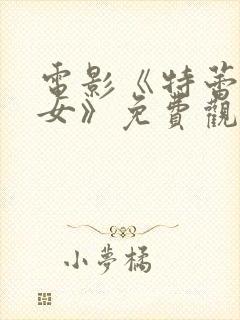 電影《特蕾
女》免費觀
小夢橘